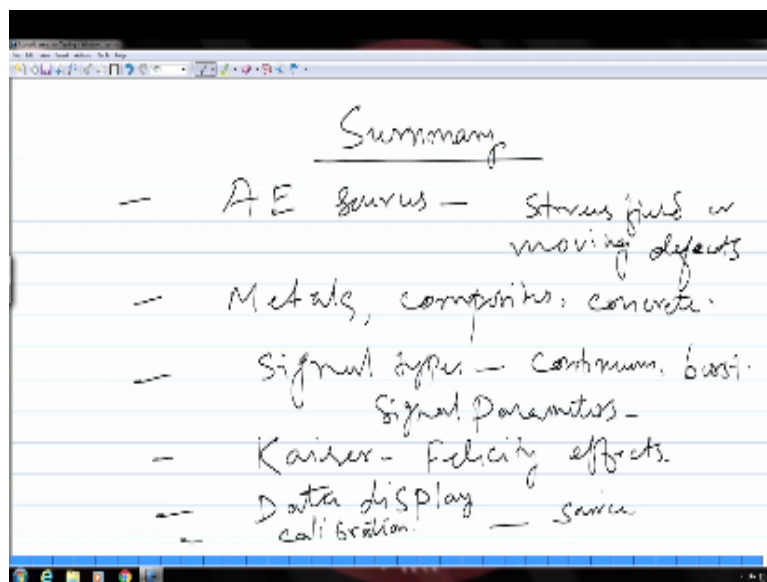 Summary
- AE sources - Stress field or
moving defects
- Metals, composites, concrete.
- Signal types - Continuous, burst.
Signal Parameters -
- Kaiser - Felicity effects.
- Data display - source
- calibration.